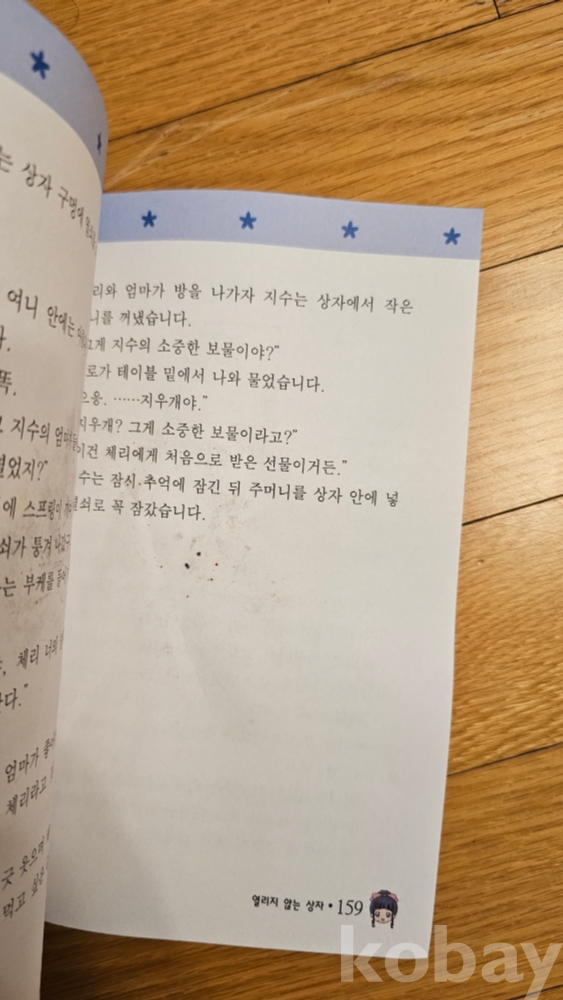 는 상자 구멍에
여니 안에는
다.
똑.
지수의
열었지?"
에 스프링이
쇠가 튕겨
는 부케를
체리 너의
다."
엄마가
체리라고
긋 웃으며
먹고 싶은
리와 엄마가 방을 나가자 지수는 상자에서 작은
니를 꺼냈습니다.
그게 지수의 소중한 보물이야?"
로가 테이블 밑에서 나와 물었습니다.
으응. ……지우개야."
지우개? 그게 소중한 보물이라고?"
이건 체리에게 처음으로 받은 선물이거든."
수는 잠시 추억에 잠긴 뒤 주머니를 상자 안에 넣
쇠로 꼭 잠갔습니다.
열리지 않는 상자 • 159
kobay